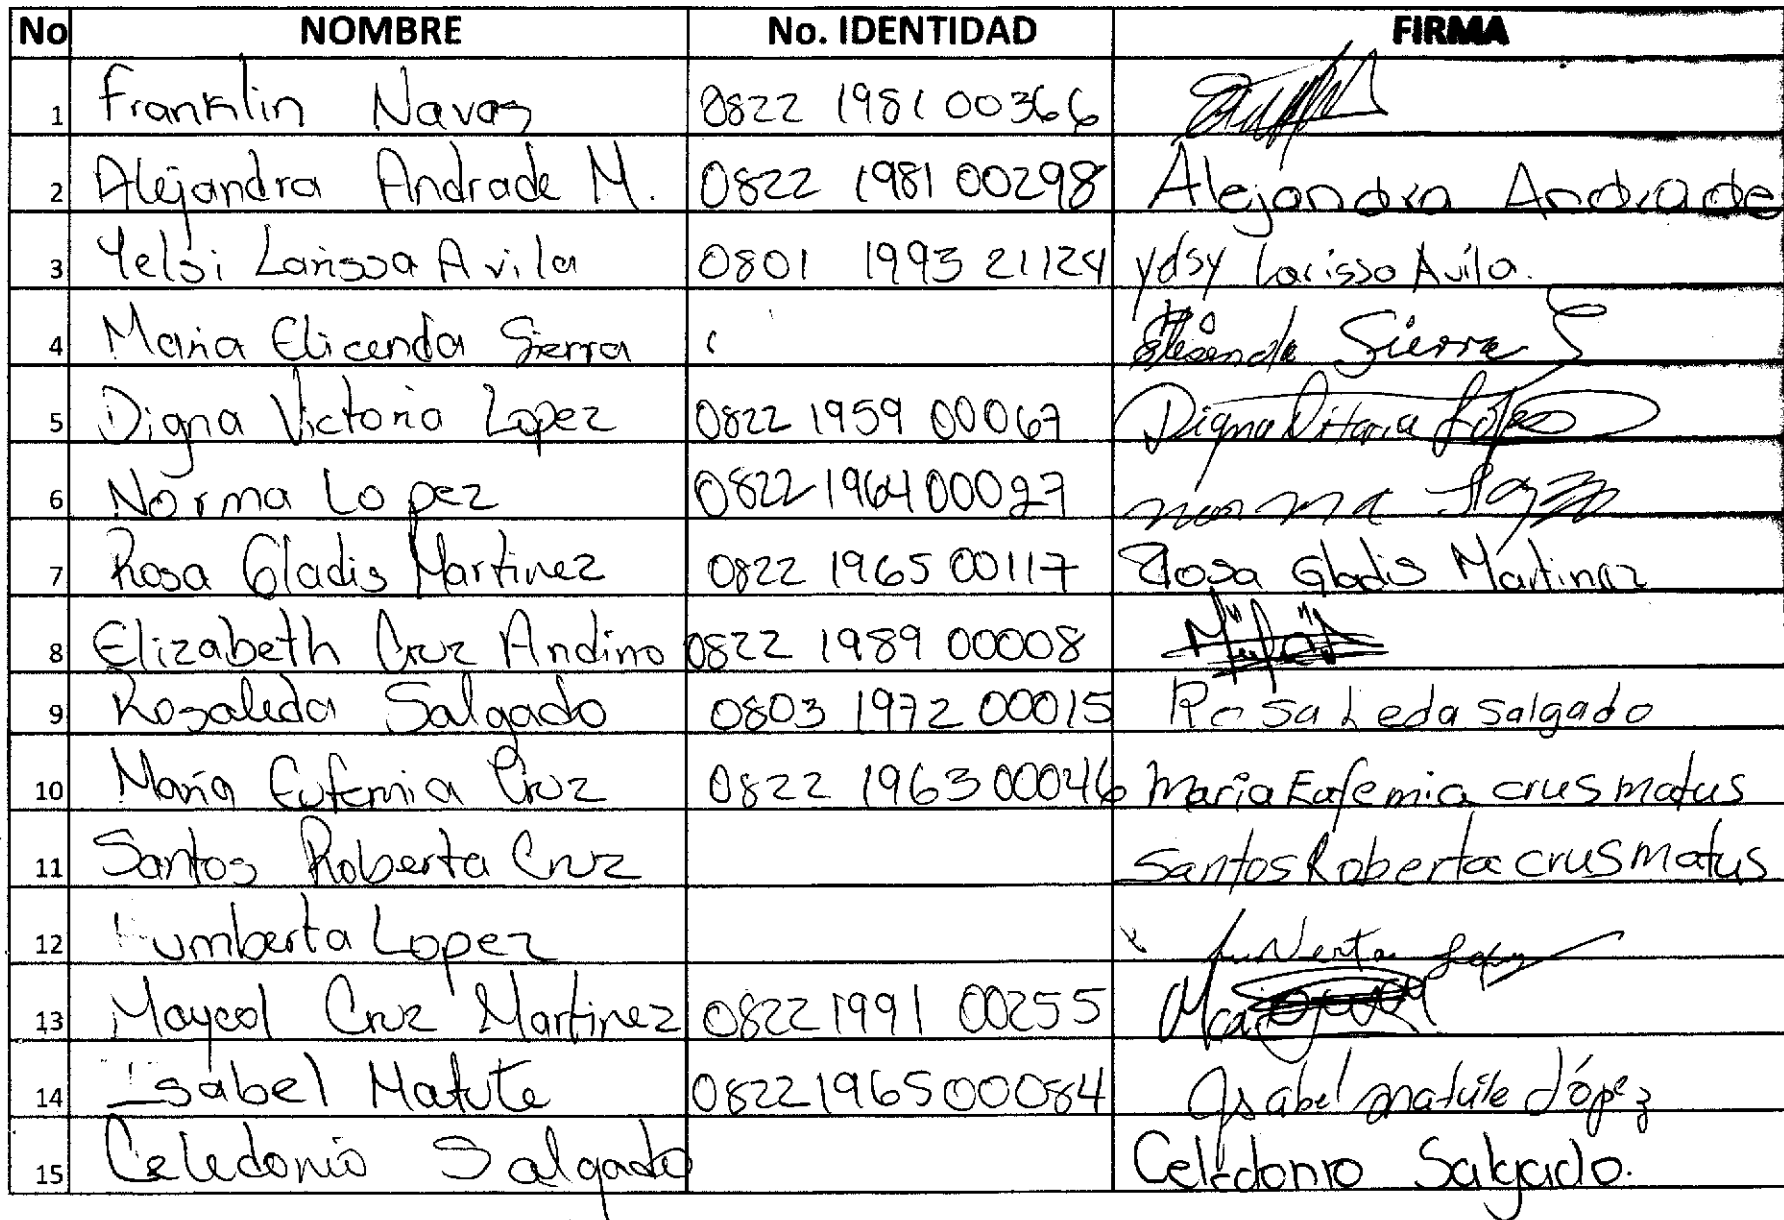 No NOMBRE No. IDENTIDAD FIRMA
1 Franklin Navas 0822 1981 00366
2 Alejandra Andrade M. 0822 1981 00298 Alejandra Andrade
3 Yelsi Larissa Avila 0801 1993 21124 ydsy Larissa Avila.
4 Maria Elicenda Sierra Elicenda Sierra
5 Digna Victoria Lopez 0822 1959 00067 Digna Vitoria López
6 Norma Lopez 0822 1964 00027 norma
7 Rosa Gladis Martinez 0822 1965 00117 Rosa Gladis Martinez
8 Elizabeth Cruz Andino 0822 1989 00008
9 Rosaleda Salgado 0803 1972 00015 Rosa Leda Salgado
10 Maria Eufemia Cruz 0822 1963 00046 Maria Eufemia crus matus
11 Santos Roberta Cruz Santos Roberta crus matus
12 Humberta Lopez
13 Maycol Cruz Martinez 0822 1991 00255
14 Isabel Matute 0822 1965 00084 Isabel matute López
15 Celedonio Salgado Celedonio Salgado.